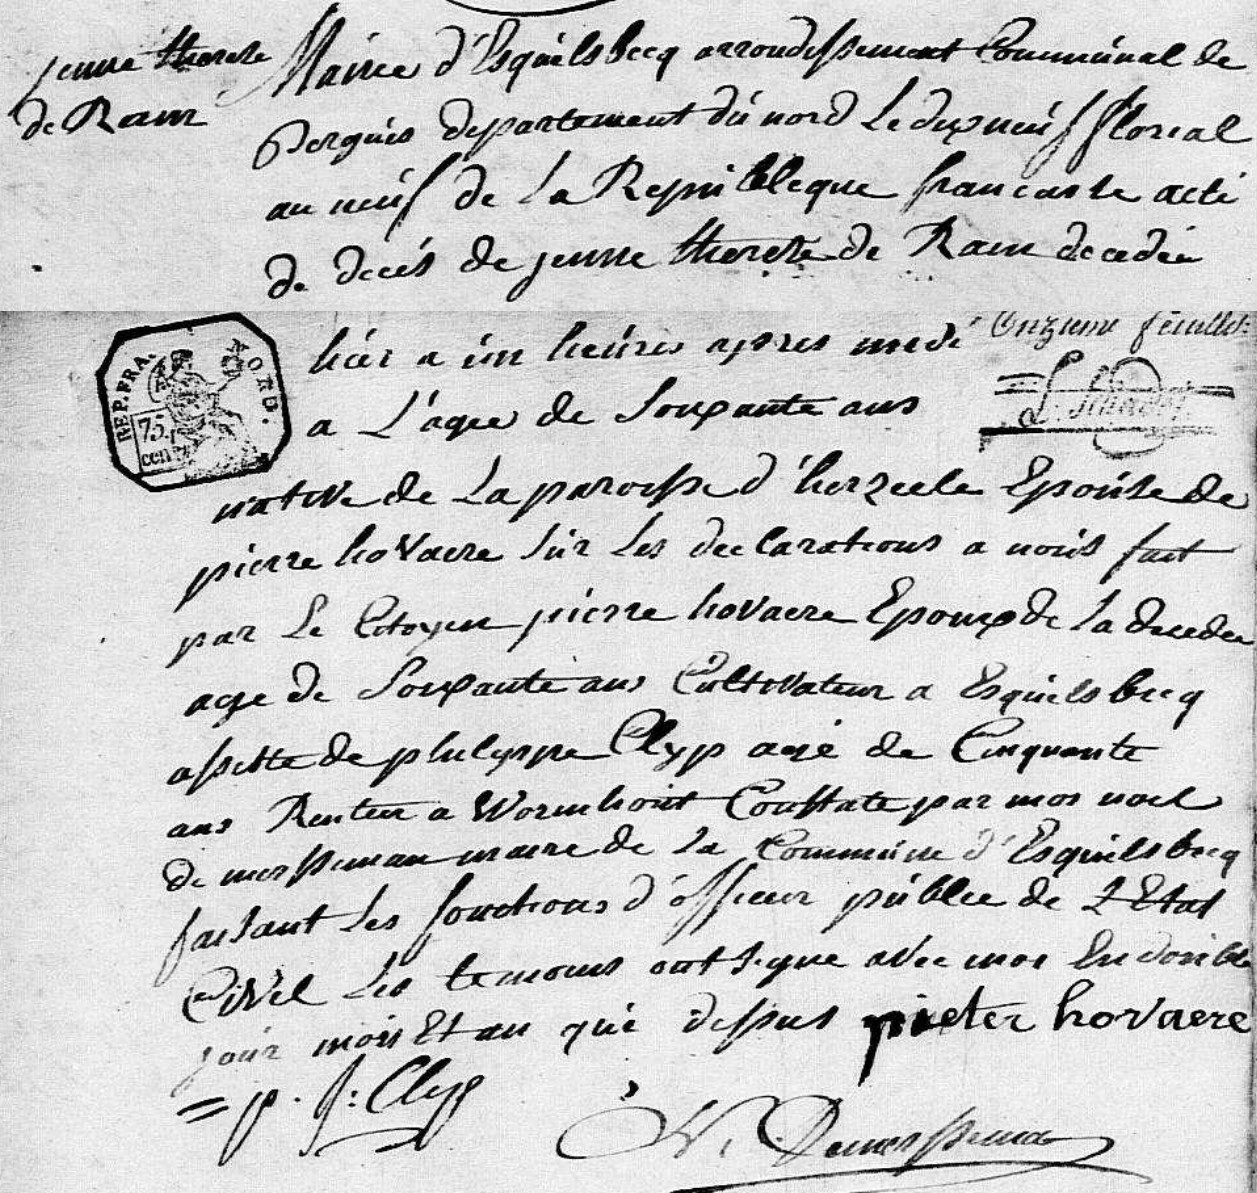 jenne therese
de Ram
Mairie d'Esquelsbecq arrondissement Communal de
Bergues departement du nord Le dix neuf floreal
an neuf de La Republique francaise acte
de decés de jenne therese de Ram decedée
REP. FRA. NORD.
75 cent
onzieme feuillet
hier a un heures apres midi
a L'agee de Soixante ans
native de La paroisse d'herzeele Epouse de
pierre hovaere sur Les declarations a nous fait
par Le Citoyen pierre hovaere Epoux de La decedee
age de Soixante ans Cultivateur a Esquelsbecq
assiste de philippe Clyp agé de Cinquante
ans Rentier a Wormhout Constate par moi noel
de mersseman maire de La Commune d'Esquelsbecq
faisant Les fonctions d'officier publicc de L'Etat
Civil Les temoins ont signe avec moi Endouble
jour mois Et an que dessus pieter hovaere
= p. f: Clyp
N. Demersseman